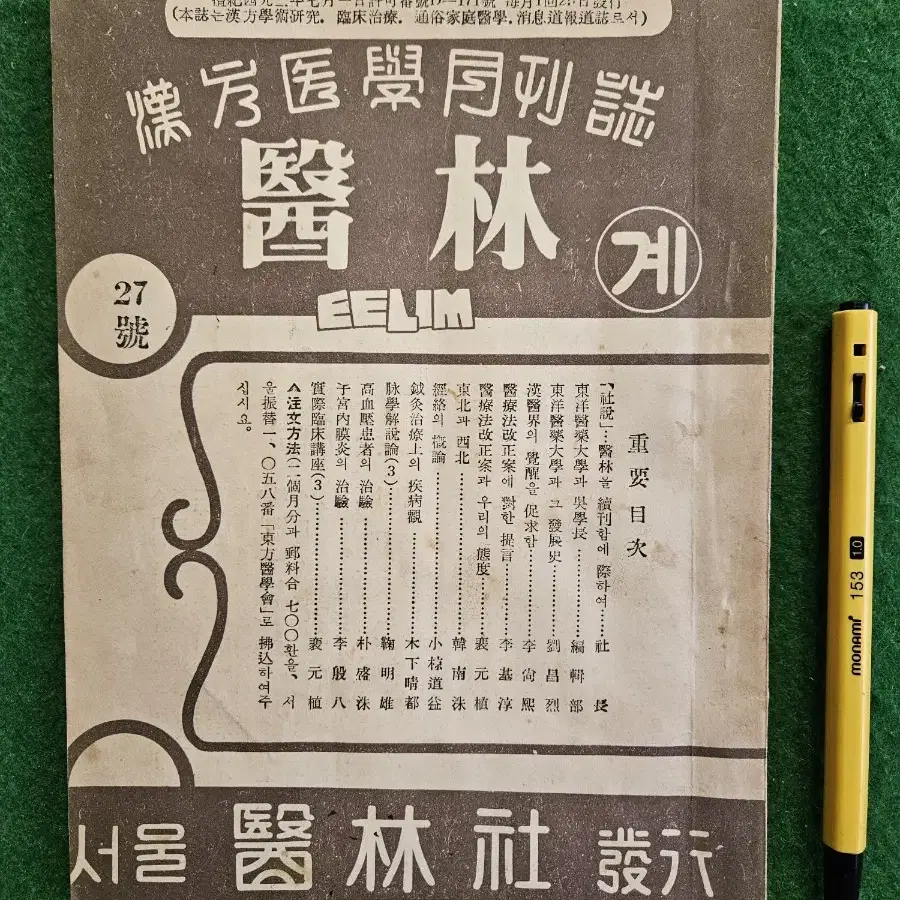 (本誌는漢方學術硏究. 臨床治療. 通俗家庭醫學.消息道報道誌로서)
漢方医學月刊誌
醫林
계
EELIM
27
號
重要目次
「社說」…醫林을 續刊함에 際하여……社長
東洋醫藥大學과 吳學長……編輯部
東洋醫藥大學과 그 發展史……劉昌烈
漢醫界의 覺醒을 促求함……李尙熙
醫療法改正案에 對한 提言……李基淳
醫療法改正案과 우리의 態度……裵元植
東北과 西北……韓南洙
經絡의 槪論……小椋道益
鍼灸治療上의 疾病觀……木下晴都
脉學解說論(3)……鞠明雄
高血壓患者의 治驗……朴盛洙
子宮內膜炎의 治驗……李殷八
實際臨床講座(3)……裵元植
注文方法(二個月分과 郵料合 七〇〇환을、서
울振替一、〇五八番「東方醫學會」로 拂込하여주
십시요。
서울 醫林社 發行
monami 153 1.0